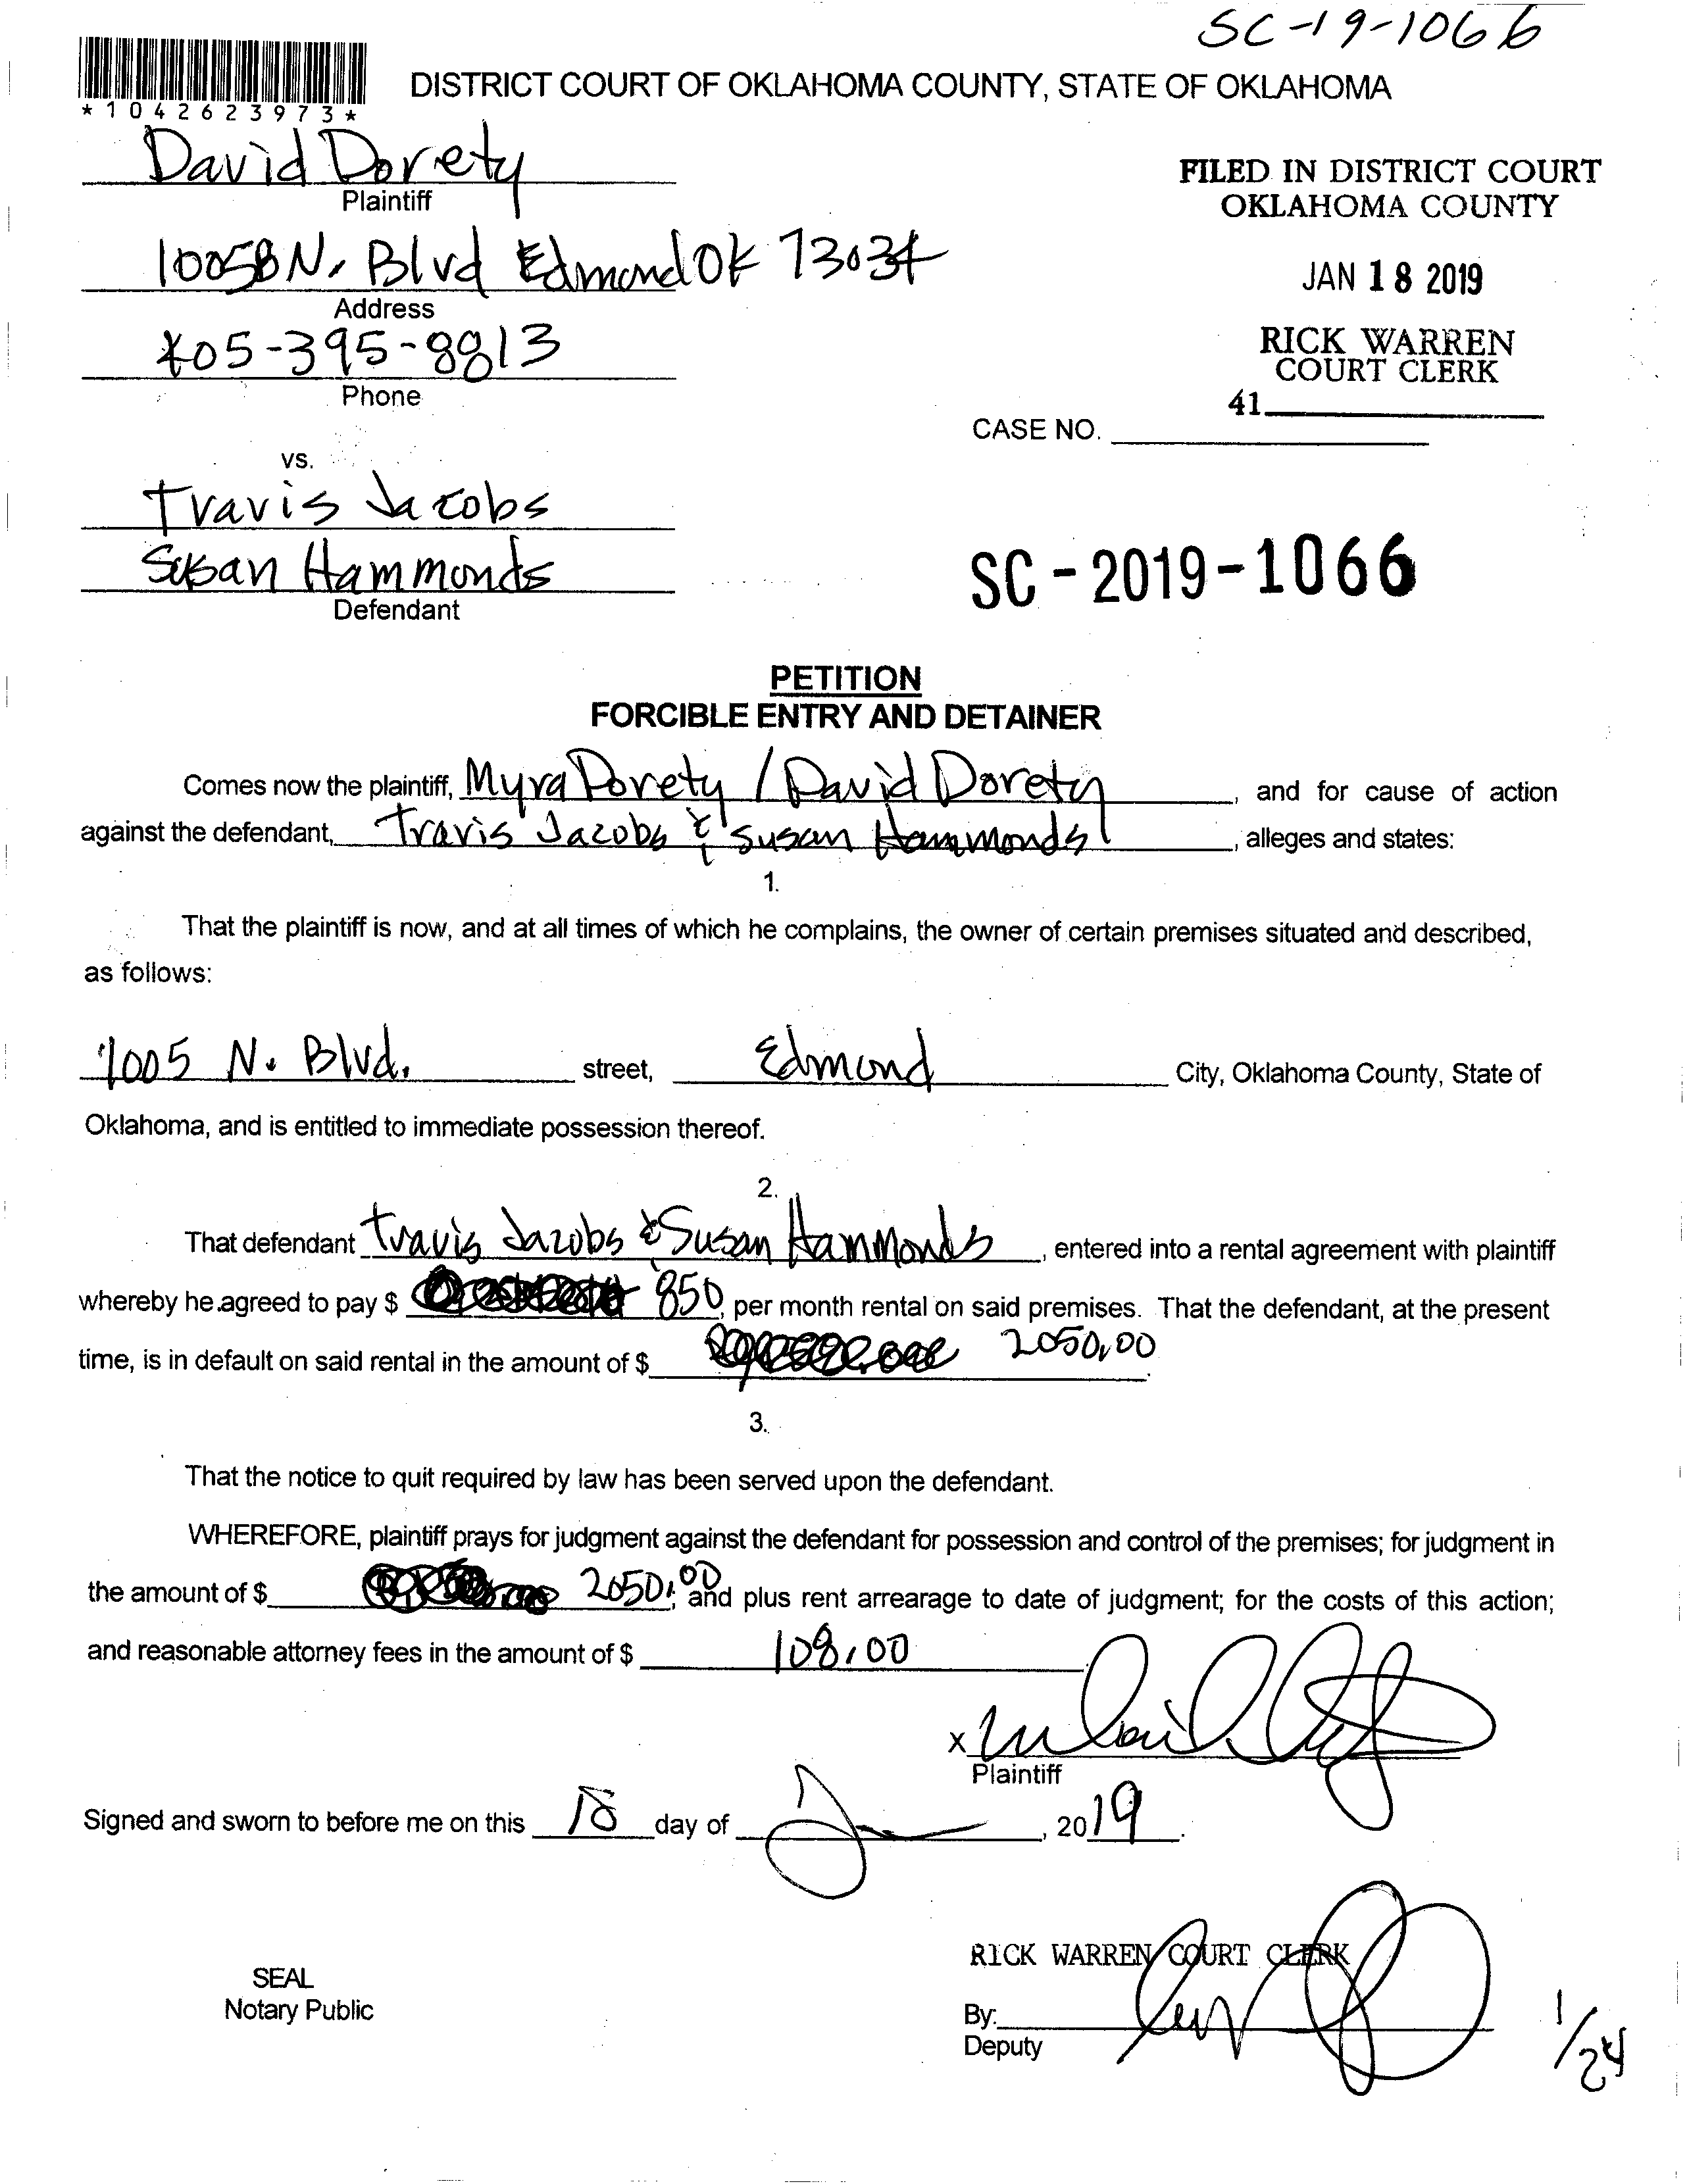 SC-19-1066
*1042623973*
DISTRICT COURT OF OKLAHOMA COUNTY, STATE OF OKLAHOMA
David Dorety
Plaintiff
FILED IN DISTRICT COURT
OKLAHOMA COUNTY
1005B N. Blvd Edmond OK 73034
Address
JAN 18 2019
405-395-8813
Phone
RICK WARREN
COURT CLERK
41
CASE NO.
vs.
Travis Jacobs
Susan Hammonds
Defendant
SC-2019-1066
PETITION
FORCIBLE ENTRY AND DETAINER
Comes now the plaintiff, Myra Dorety / David Dorety, and for cause of action
against the defendant, Travis Jacobs & Susan Hammonds, alleges and states:
1.
That the plaintiff is now, and at all times of which he complains, the owner of certain premises situated and described,
as follows:
1005 N. Blvd. street, Edmond City, Oklahoma County, State of
Oklahoma, and is entitled to immediate possession thereof.
2.
That defendant Travis Jacobs & Susan Hammonds, entered into a rental agreement with plaintiff
whereby he agreed to pay $ 850, per month rental on said premises. That the defendant, at the present
time, is in default on said rental in the amount of $ 2050.00.
3.
That the notice to quit required by law has been served upon the defendant.
WHEREFORE, plaintiff prays for judgment against the defendant for possession and control of the premises; for judgment in
the amount of $ 2050.00; and plus rent arrearage to date of judgment; for the costs of this action;
and reasonable attorney fees in the amount of $ 108.00.
X
Plaintiff
Signed and sworn to before me on this 18 day of J, 2019.
RICK WARREN COURT CLERK
SEAL
Notary Public
By:
Deputy
1/24